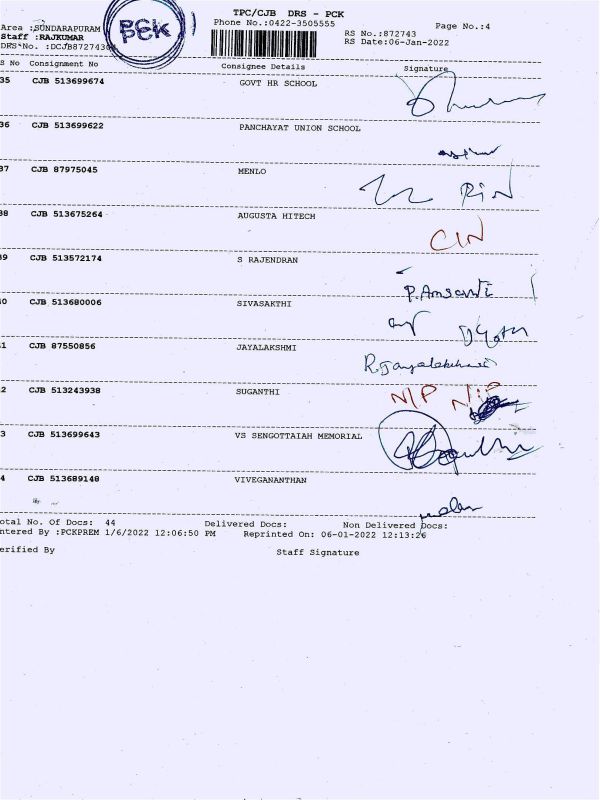 TPC/CJB DRS - PCK
Phone No.:0422-3505555 Page No.:4
Area :SUNDARAPURAM RS No.:872743
Staff :RAJKUMAR RS Date:06-Jan-2022
DRS No. :DCJB872743
PCK
S No Consignment No Consignee Details Signature
35 CJB 513699674 GOVT HR SCHOOL
36 CJB 513699622 PANCHAYAT UNION SCHOOL
37 CJB 87975045 MENLO
38 CJB 513675264 AUGUSTA HITECH
CIN
39 CJB 513572174 S RAJENDRAN
P.Amsavti
40 CJB 513680006 SIVASAKTHI
41 CJB 87550856 JAYALAKSHMI
R.Jayalakshmi
42 CJB 513243938 SUGANTHI N/P N/P
43 CJB 513699643 VS SENGOTTAIAH MEMORIAL
44 CJB 513689148 VIVEGANANTHAN
otal No. Of Docs: 44 Delivered Docs: Non Delivered Docs:
ntered By :PCKPREM 1/6/2022 12:06:50 PM Reprinted On: 06-01-2022 12:13:26
erified By Staff Signature